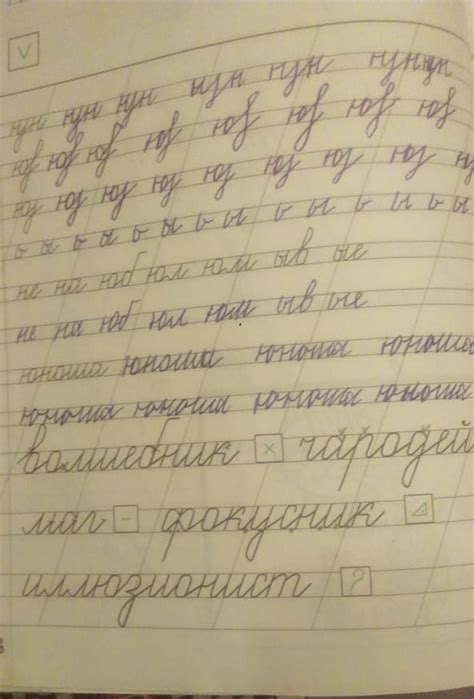 нзн нзн нзн нзн нзн нзн нзн
юв юв юв юв юв юв юв юв
юз юз юз юз юз юз юз юз
ь ы ь ы ь ы ь ь ы ь ы ь ы ь ы
не на юб юл юм ыв ые
не на юб юл юм ыв ые
юноша юноша юноша юноша
юноша юноша юноша юноша
волшебник × чародей
маг - фокусник
иллюзионист ?